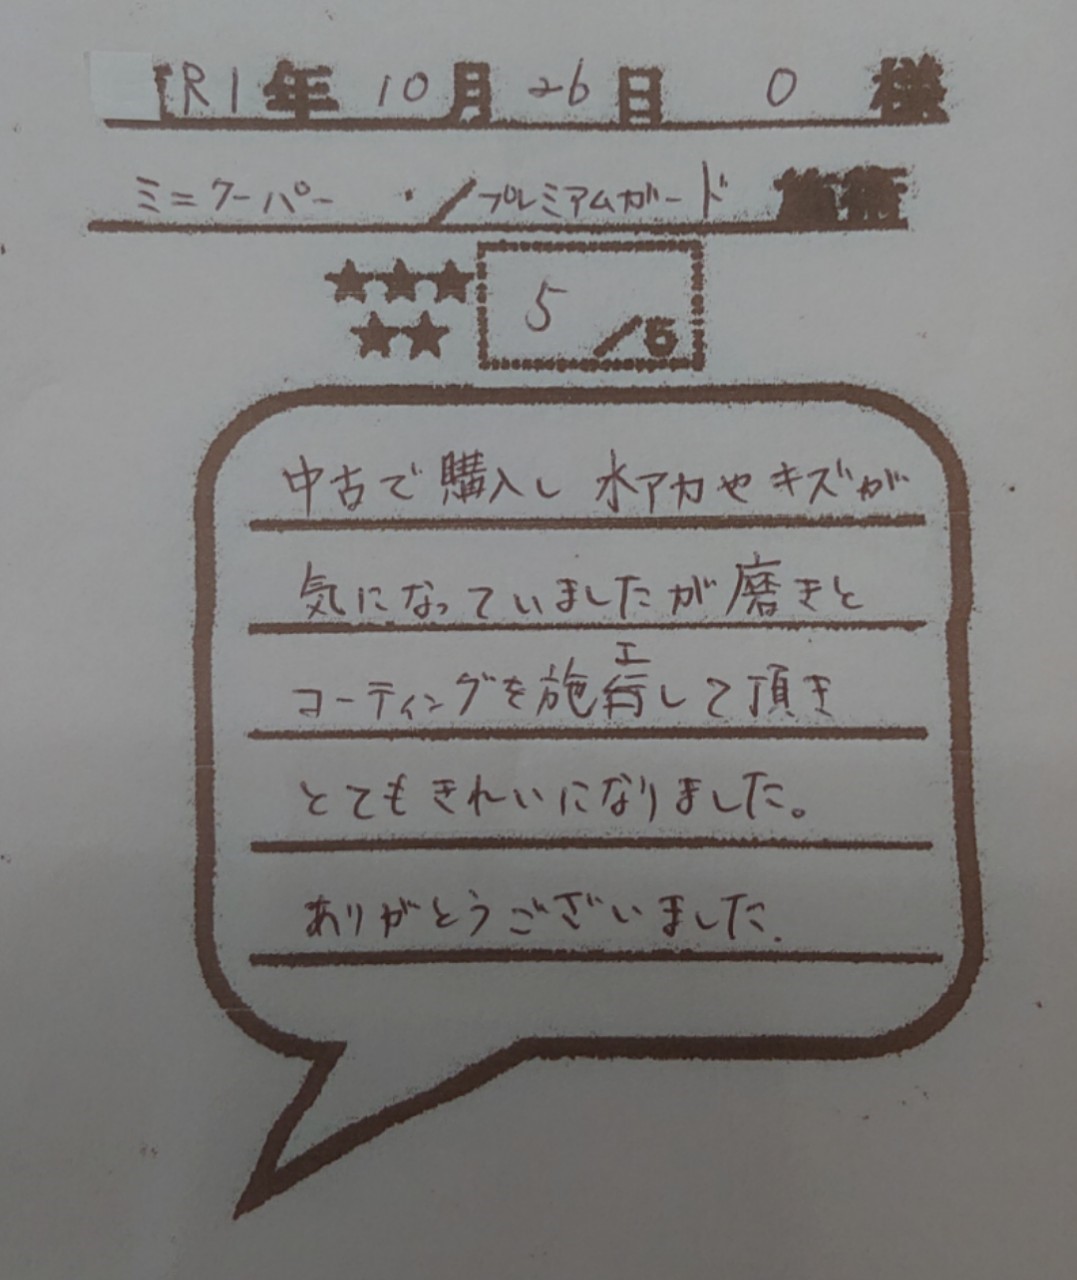 R1年 10月 26日 O 様
ミニクーパー ・/プレミアムガード 施術
★★★
★★
5/5
中古で購入し 水アカやキズが
気になっていましたが磨きと
コーティングを施工して頂き
とてもきれいになりました。
ありがとうございました.